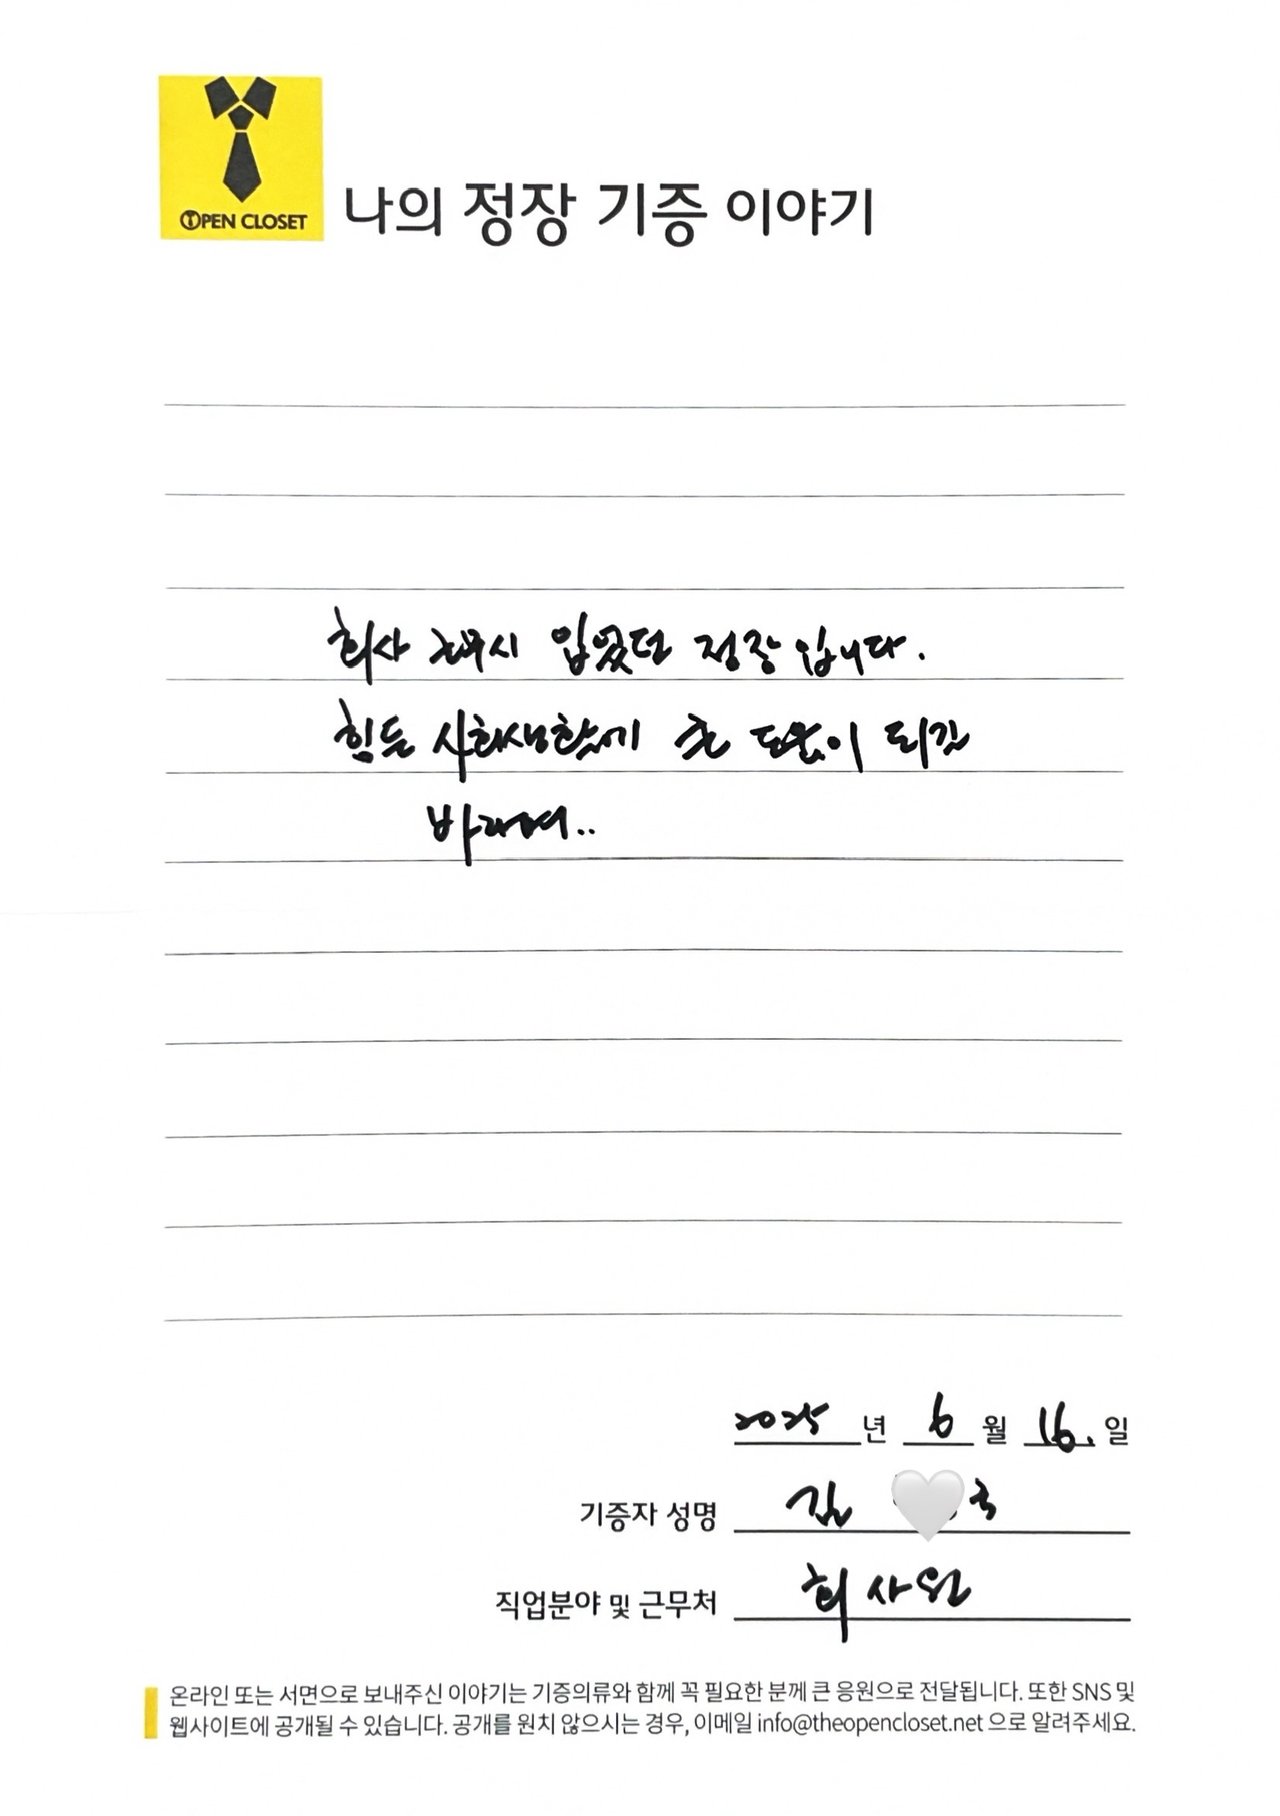 OPEN CLOSET
나의 정장 기증 이야기
회사 근무시 입었던 정장 입니다.
힘든 사회생활에 큰 도움이 되길
바라며..
2025 년 6 월 16. 일
기증자 성명 김 국
직업분야 및 근무처 회사원
온라인 또는 서면으로 보내주신 이야기는 기증의류와 함께 꼭 필요한 분께 큰 응원으로 전달됩니다. 또한 SNS 및
웹사이트에 공개될 수 있습니다. 공개를 원치 않으시는 경우, 이메일 info@theopencloset.net 으로 알려주세요.